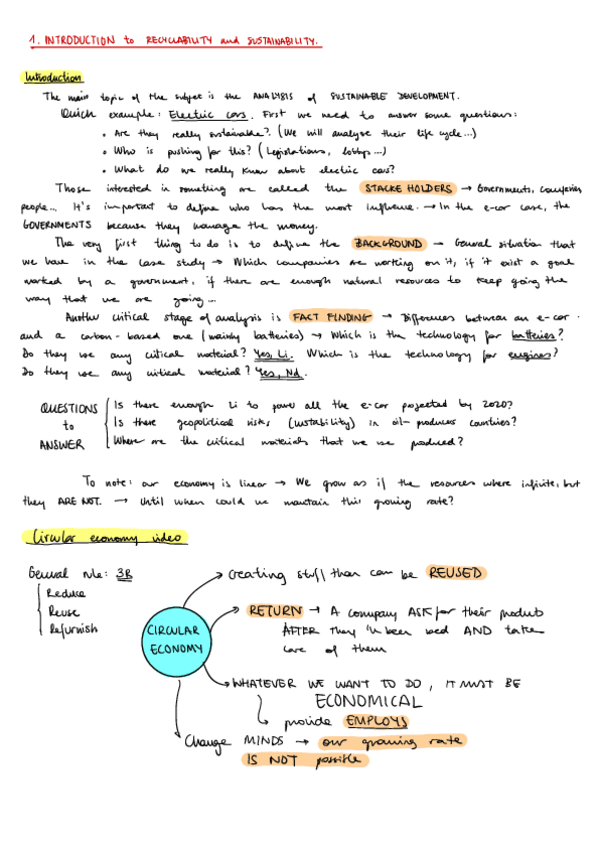 1. INTRODUCTION to RECYCLABILITY and SUSTAINABILITY.
Introduction
The main topic of the subject is the ANALYSIS of SUSTAINABLE DEVELOPMENT.
Quick example: Electric cars. First we need to answer some questions:
• Are they really sustainable? (We will analyse their life cycle...)
• Who is pushing for this? (Legislations, lobbys...)
• What do we really know about electric cars?
Those interested in something are called the STACKE HOLDERS → Governments, companies
people... It's important to define who has the most influence. → In the e-car case, the
GOVERNMENTS because they manage the money.
The very first thing to do is to define the BACKGROUND → General situation that
we have in the case study → Which companies are working on it, if it exist a goal
marked by a government, if there are enough natural resources to keep going the
way that we are going...
Another critical stage of analysis is FACT FINDING → Differences between an e-car
and a carbon-based one (mainly batteries) → Which is the technology for batteries?
Do they use any critical material? Yes, Li. Which is the technology for engines?
Do they use any critical material? Yes, Nd.
QUESTIONS to ANSWER
Is there enough Li to power all the e-car projected by 2020?
Is there geopolitical risks (instability) in oil-produces countries?
Where are the critical materials that we use produced?
To note: our economy is linear → We grow as if the resources where infinite, but
they ARE NOT. → Until when could we maintain this growing rate?
Circular economy video
General rule: 3R
Reduce
Reuse
Refurnish
CIRCULAR
ECONOMY
Creating stuff than can be REUSED
RETURN → A company ASK for their products
AFTER They 'll been used AND take
care of them
WHATEVER WE WANT TO DO, IT MUST BE
ECONOMICAL
provide EMPLOYS
Change MINDS → our growing rate
IS NOT possible